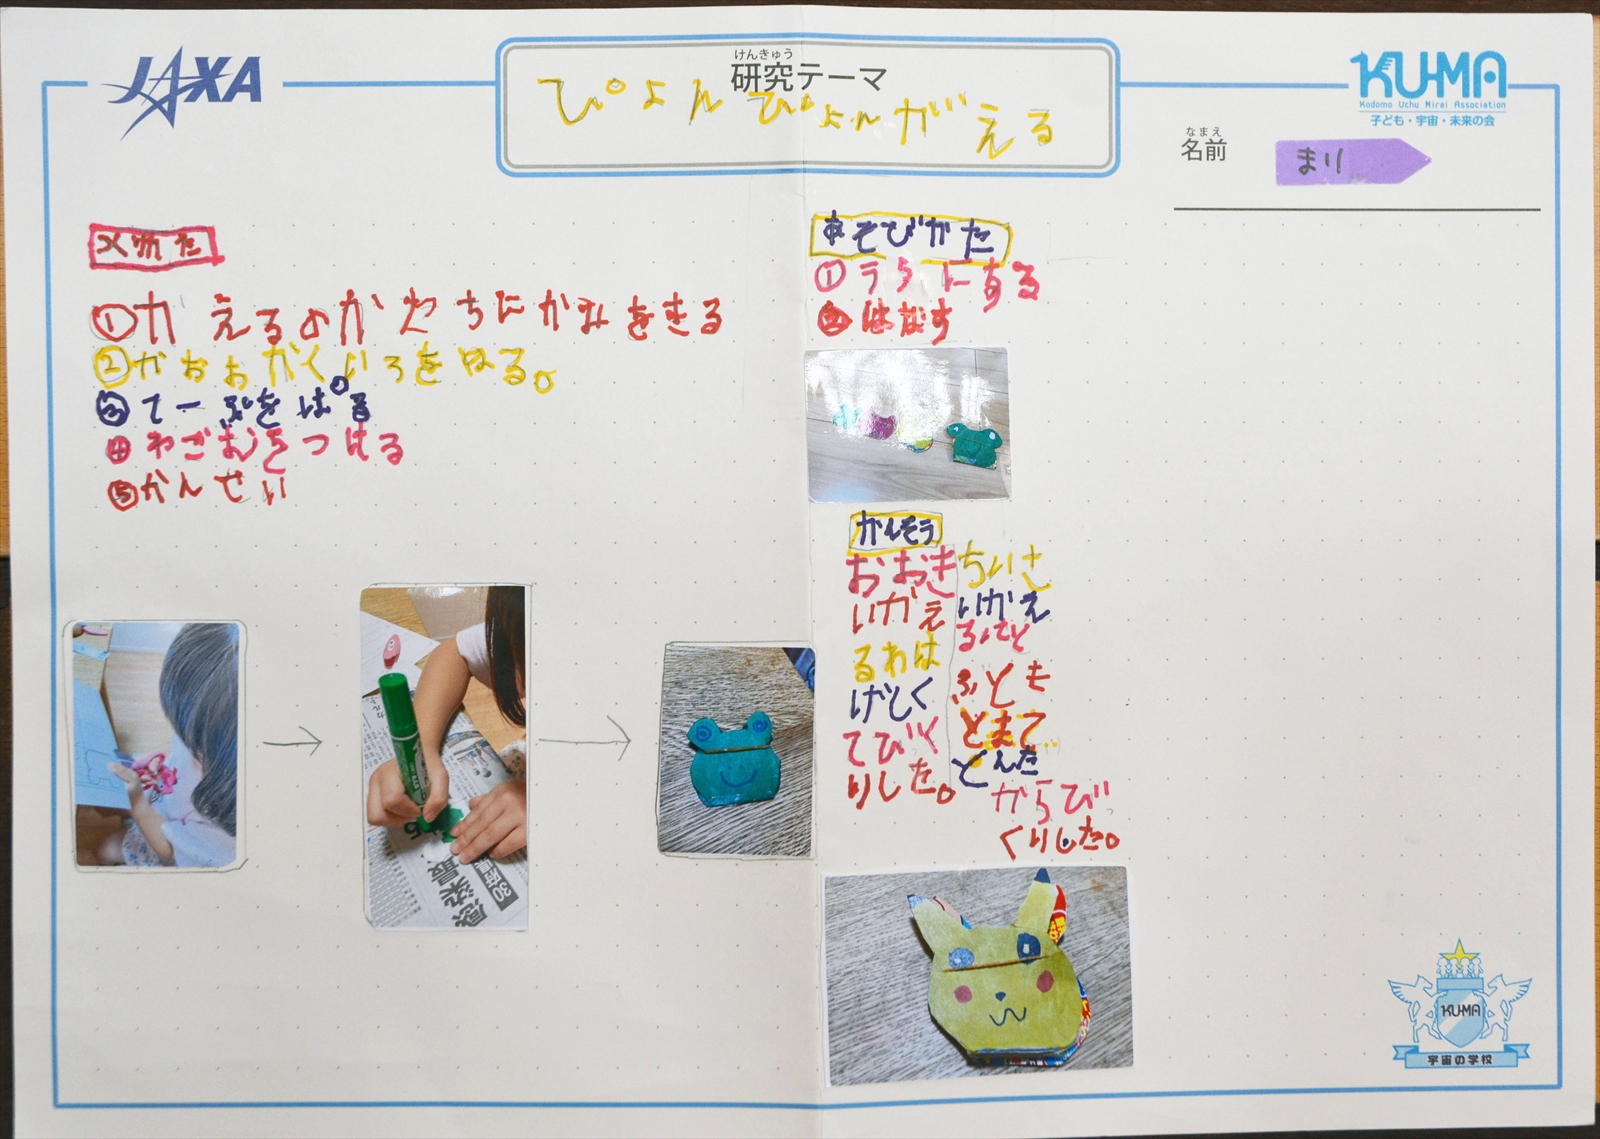 JAXA
けんきゅう
研究テーマ
ぴょんぴょんがえる
KU-MA
Kodomo Uchu Mirai Association
子ども・宇宙・未来の会
なまえ
名前
まり
①かえるのかたちにかみをきる
②かおおかくいろをはる。
③てーぷをはる
④わごむをつける
⑤かんせい
あそびかた
①うらにする
②はなす
かんそう
おおき
いかえ
るわは
げしく
てびく
りした。
ちいさ
いかえ
るだと
とまて
とんだ
からび
っ
くりした。
30府県
感染最
KU-MA
宇宙の学校